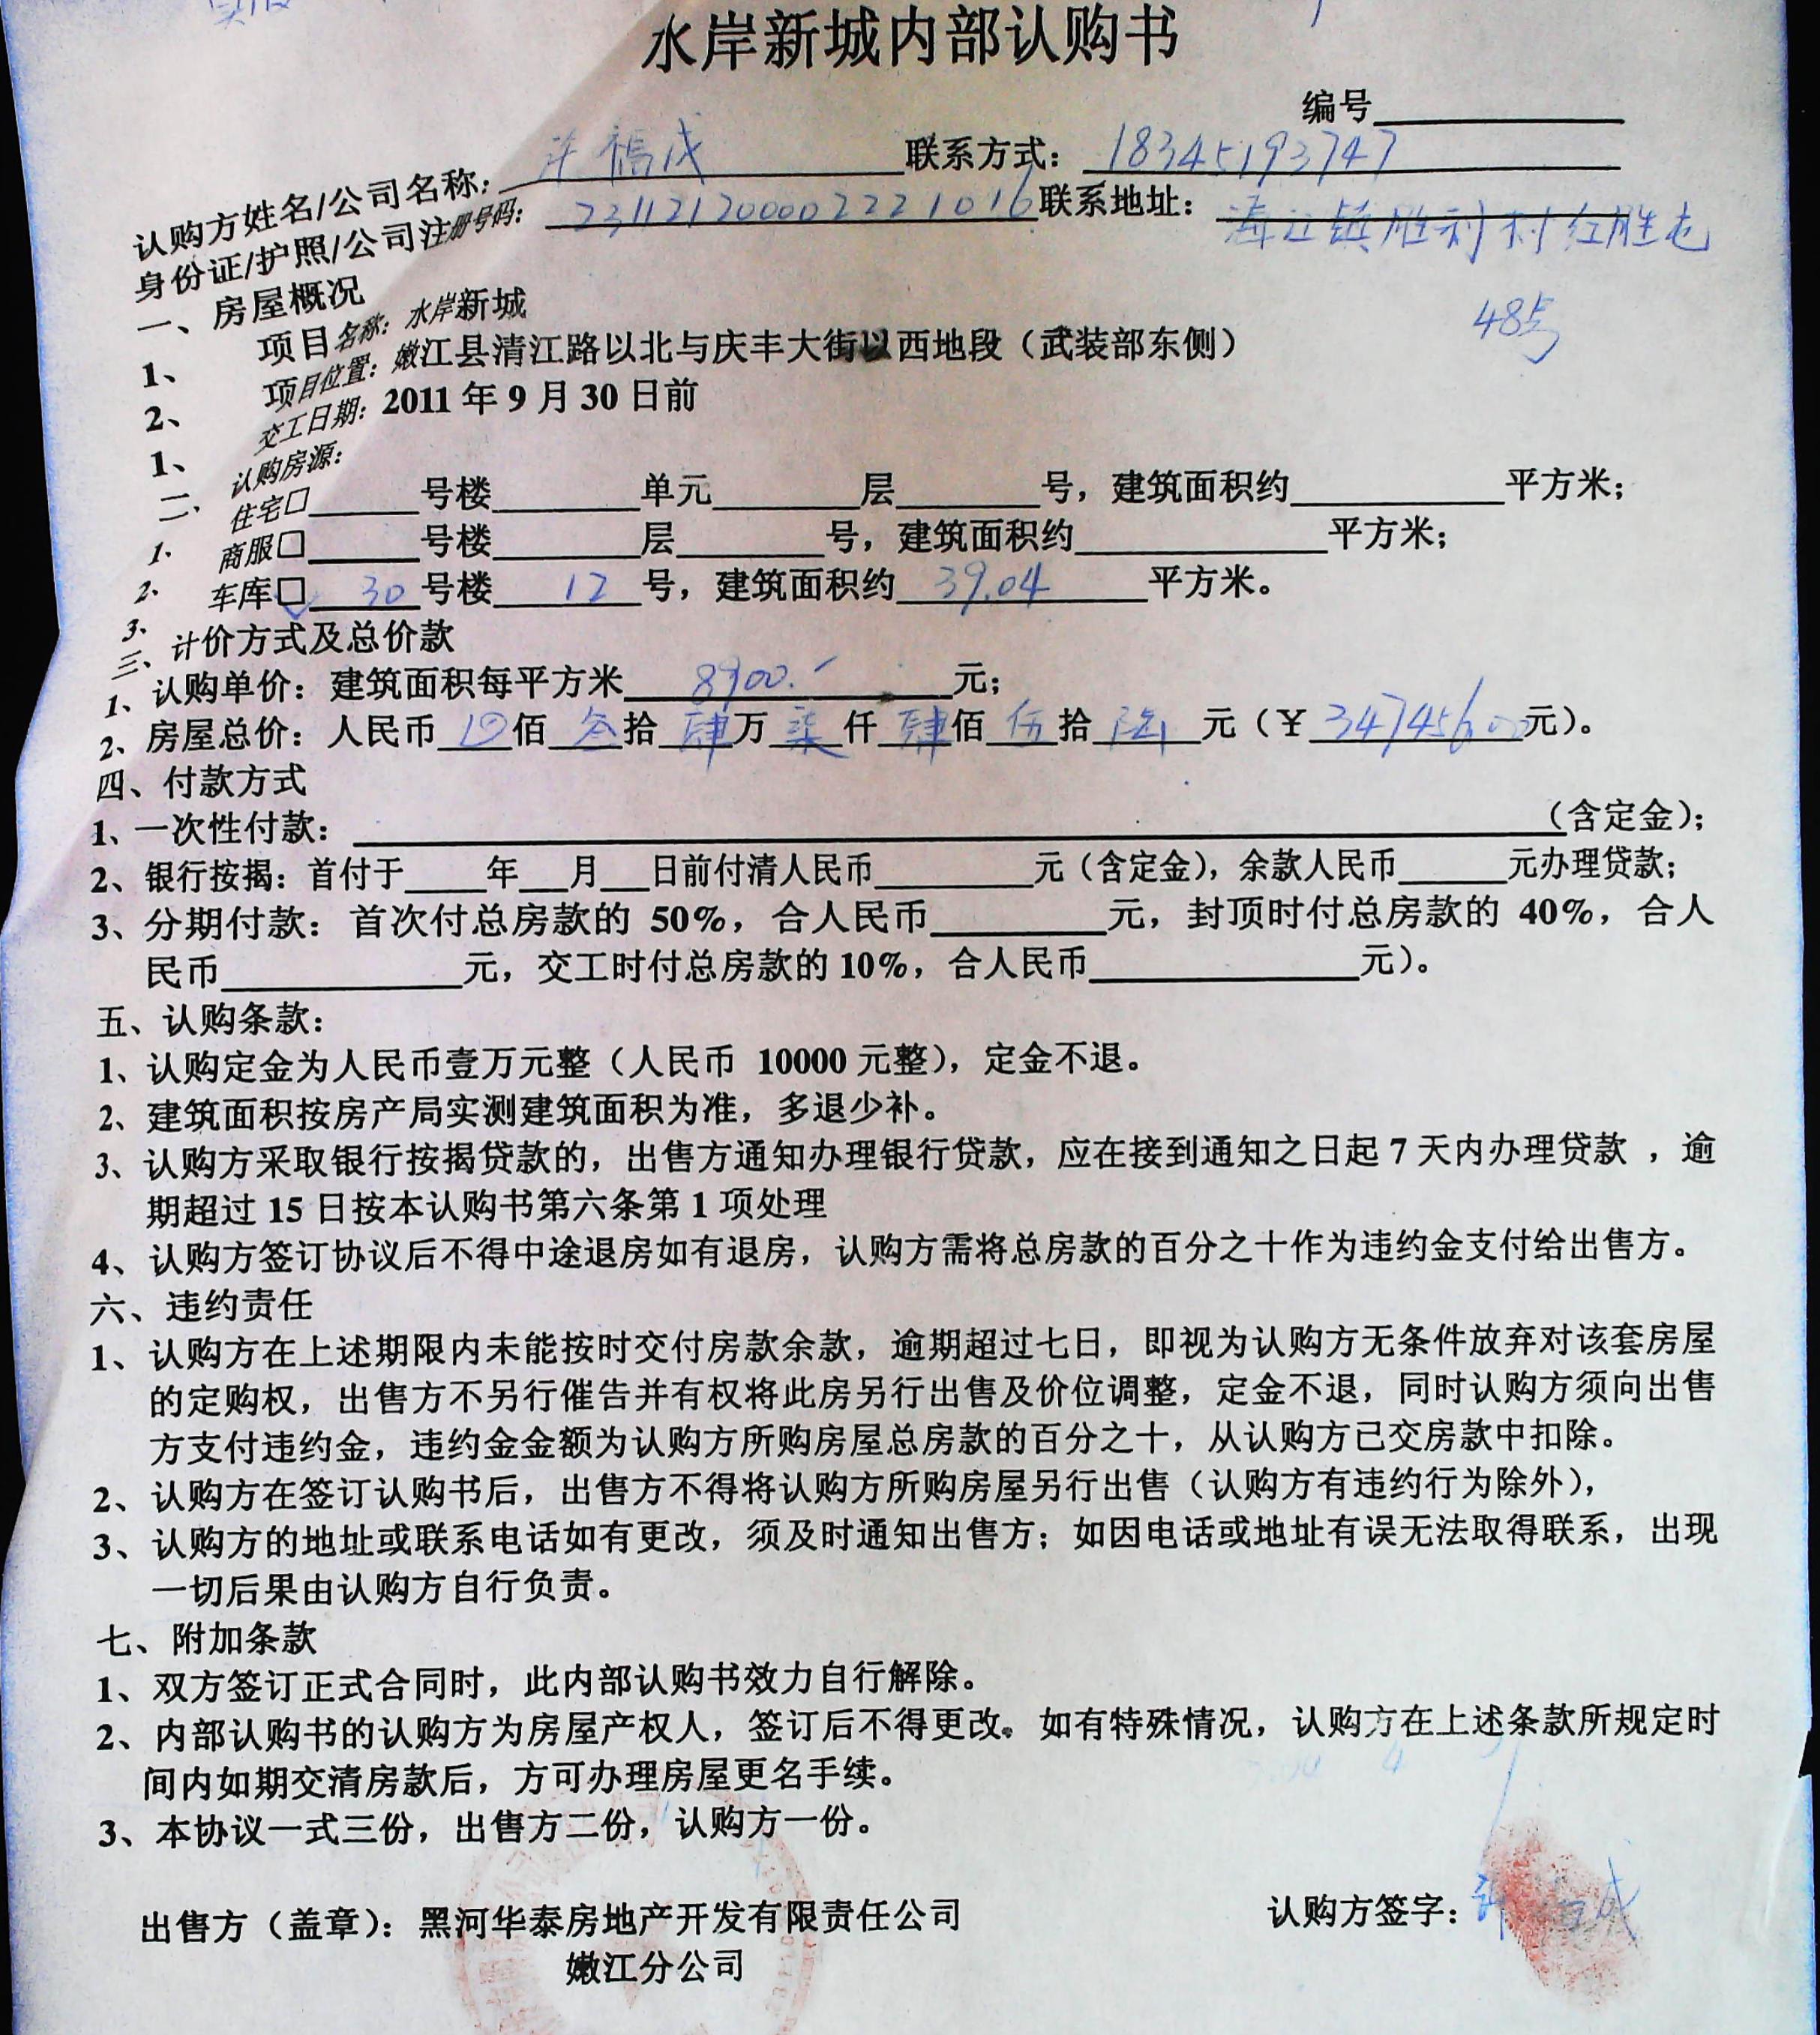 水岸新城内部认购书
编号
认购方姓名/公司名称： 福成 联系方式：18345193747
身份证/护照/公司注册号码： 联系地址：海江镇胜利村红胜屯
48号
一、房屋概况
1、 项目名称：水岸新城
2、 项目位置：嫩江县清江路以北与庆丰大街以西地段（武装部东侧）
1、 交工日期：2011年9月30日前
二、认购房源：
1. 住宅□ 号楼 单元 层 号，建筑面积约 平方米；
2. 商服□ 号楼 层 号，建筑面积约 平方米；
3. 车库□ 30 号楼 12 号，建筑面积约 39.04 平方米。
三、计价方式及总价款
1、认购单价：建筑面积每平方米 8900.- 元；
2、房屋总价：人民币 佰 叁 拾 肆 万 柒 仟 肆 佰 伍 拾 陆 元（￥ 347456.00 元）。
四、付款方式
1、一次性付款： （含定金）；
2、银行按揭：首付于 年 月 日前付清人民币 元（含定金），余款人民币 元办理贷款；
3、分期付款：首次付总房款的 50%，合人民币 元，封顶时付总房款的 40%，合人
民币 元，交工时付总房款的10%，合人民币 元）。
五、认购条款：
1、认购定金为人民币壹万元整（人民币 10000 元整），定金不退。
2、建筑面积按房产局实测建筑面积为准，多退少补。
3、认购方采取银行按揭贷款的，出售方通知办理银行贷款，应在接到通知之日起 7 天内办理贷款 ，逾
期超过 15 日按本认购书第六条第 1 项处理
4、认购方签订协议后不得中途退房如有退房，认购方需将总房款的百分之十作为违约金支付给出售方。
六、违约责任
1、认购方在上述期限内未能按时交付房款余款，逾期超过七日，即视为认购方无条件放弃对该套房屋
的定购权，出售方不另行催告并有权将此房另行出售及价位调整，定金不退，同时认购方须向出售
方支付违约金，违约金金额为认购方所购房屋总房款的百分之十，从认购方已交房款中扣除。
2、认购方在签订认购书后，出售方不得将认购方所购房屋另行出售（认购方有违约行为除外），
3、认购方的地址或联系电话如有更改，须及时通知出售方；如因电话或地址有误无法取得联系，出现
一切后果由认购方自行负责。
七、附加条款
1、双方签订正式合同时，此内部认购书效力自行解除。
2、内部认购书的认购方为房屋产权人，签订后不得更改。如有特殊情况，认购方在上述条款所规定时
间内如期交清房款后，方可办理房屋更名手续。
3、本协议一式三份，出售方二份，认购方一份。
出售方（盖章）：黑河华泰房地产开发有限责任公司
嫩江分公司
认购方签字：